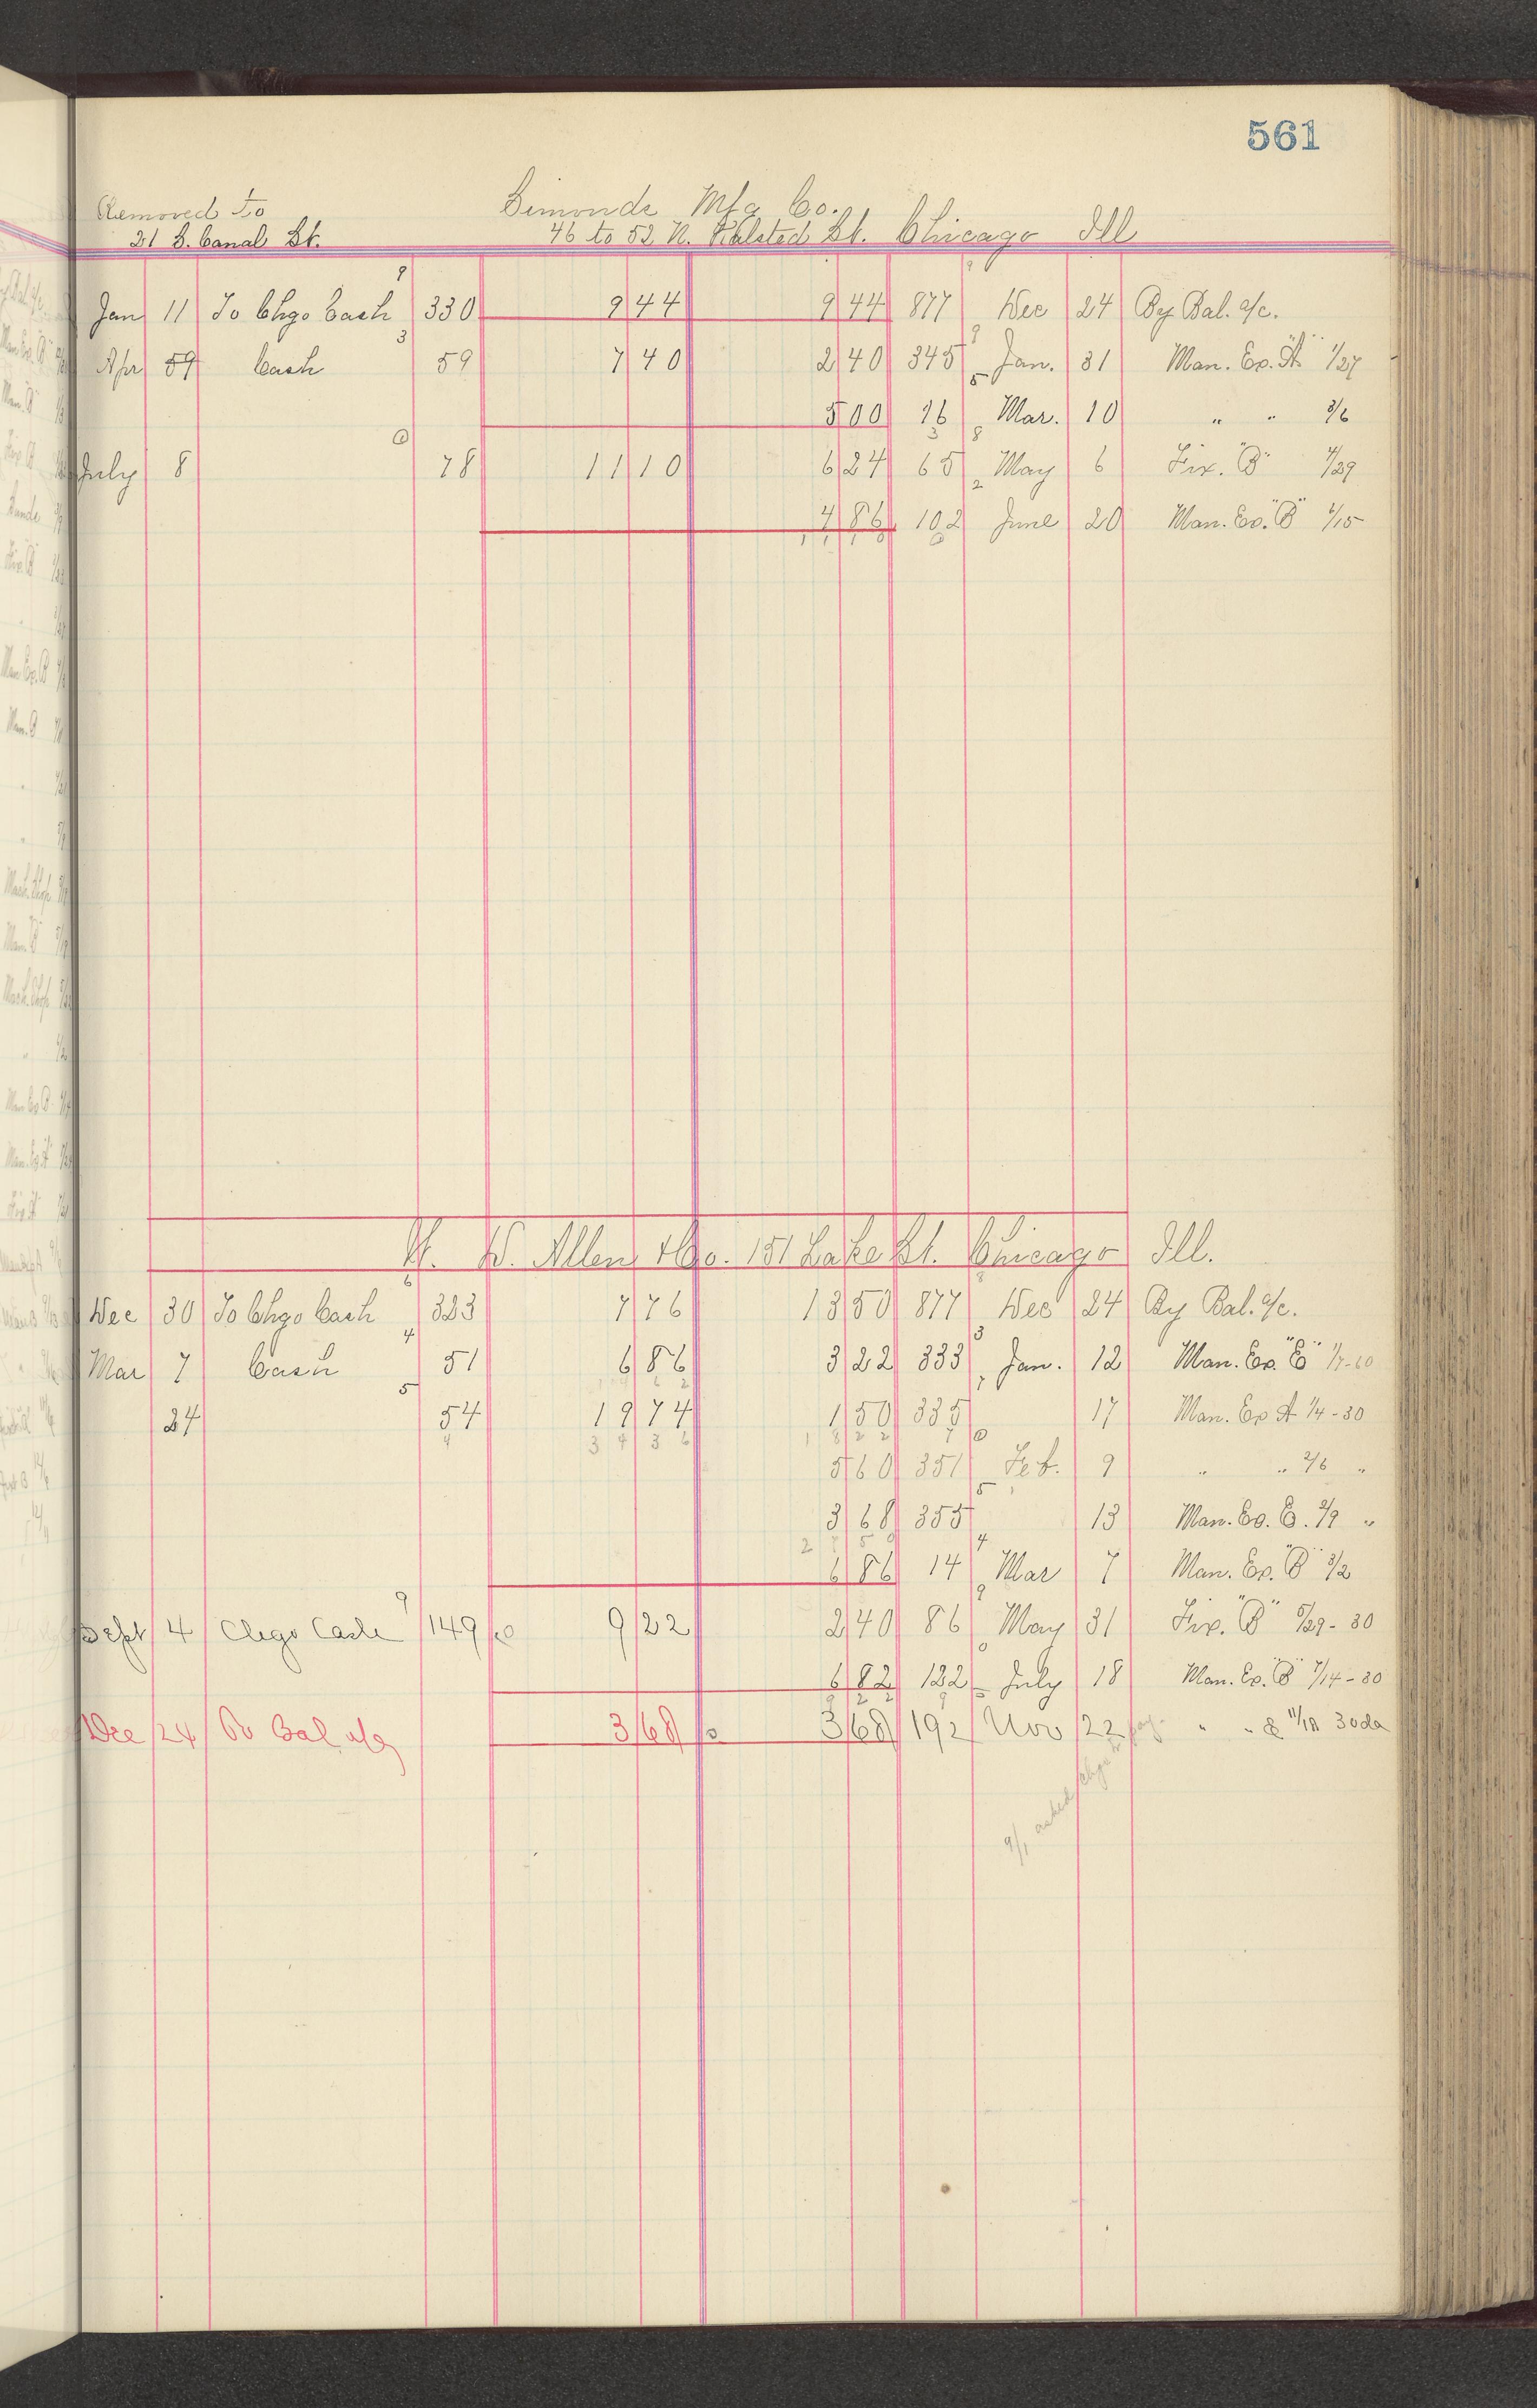 561
Removed to Simonds Mfg Co.
21 S. Canal St. 46 to 52 N. Halsted St. Chicago Ill
Jan 11 To Chgo Cash 330 9 44 9 44 877 Dec 24 By Bal. a/c.
Apr 59 Cash 59 7 40 2 40 345 Jan. 31 Man. Ex. "A" 1/27
5 00 16 Mar. 10 " " 3/6
July 8 78 11 10 6 24 65 May 6 Fix. "B" 4/29
4 86 102 June 20 Man. Ex. "B" 6/15
W. Allen & Co. 151 Lake St. Chicago Ill.
Dec 30 To Chgo Cash 323 7 76 13 50 877 Dec 24 By Bal. a/c.
Mar 7 Cash 51 6 86 3 22 333 Jan. 12 Man. Ex. "E"
24 54 19 74 1 50 335 17 Man. Ex A 1/4-30
34 36 5 60 351 Feb. 9 " " 2/6 "
3 68 355 13 Man. Ex. E. 2/9 "
6 86 14 Mar 7 Man. Ex. "B" 3/2
Sept 4 Chgo Cash 149 9 22 2 40 86 May 31 Fix. "B" 5/29-30
6 82 122 July 18 Man. Ex. "B" 7/14-30
Dec 24 To Bal a/c 3 68 3 68 192 Nov 22 " " E 11/18 30da
9/1 asked Chgo